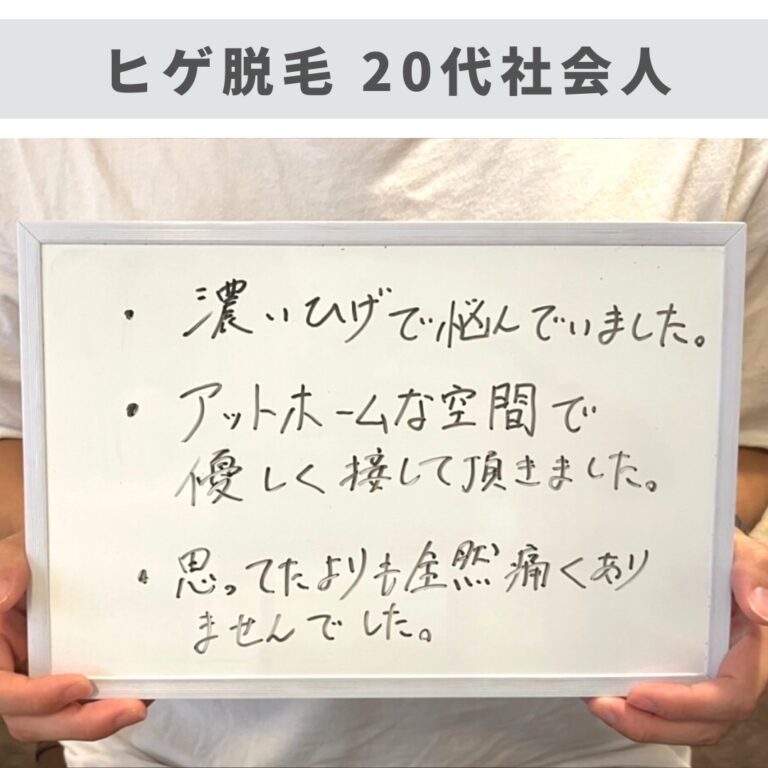 ヒゲ脱毛 20代社会人
・ 濃いひげで悩んでいました。
・ アットホームな空間で
優しく接して頂きました。
・ 思ってたよりも全然痛くあり
ませんでした。